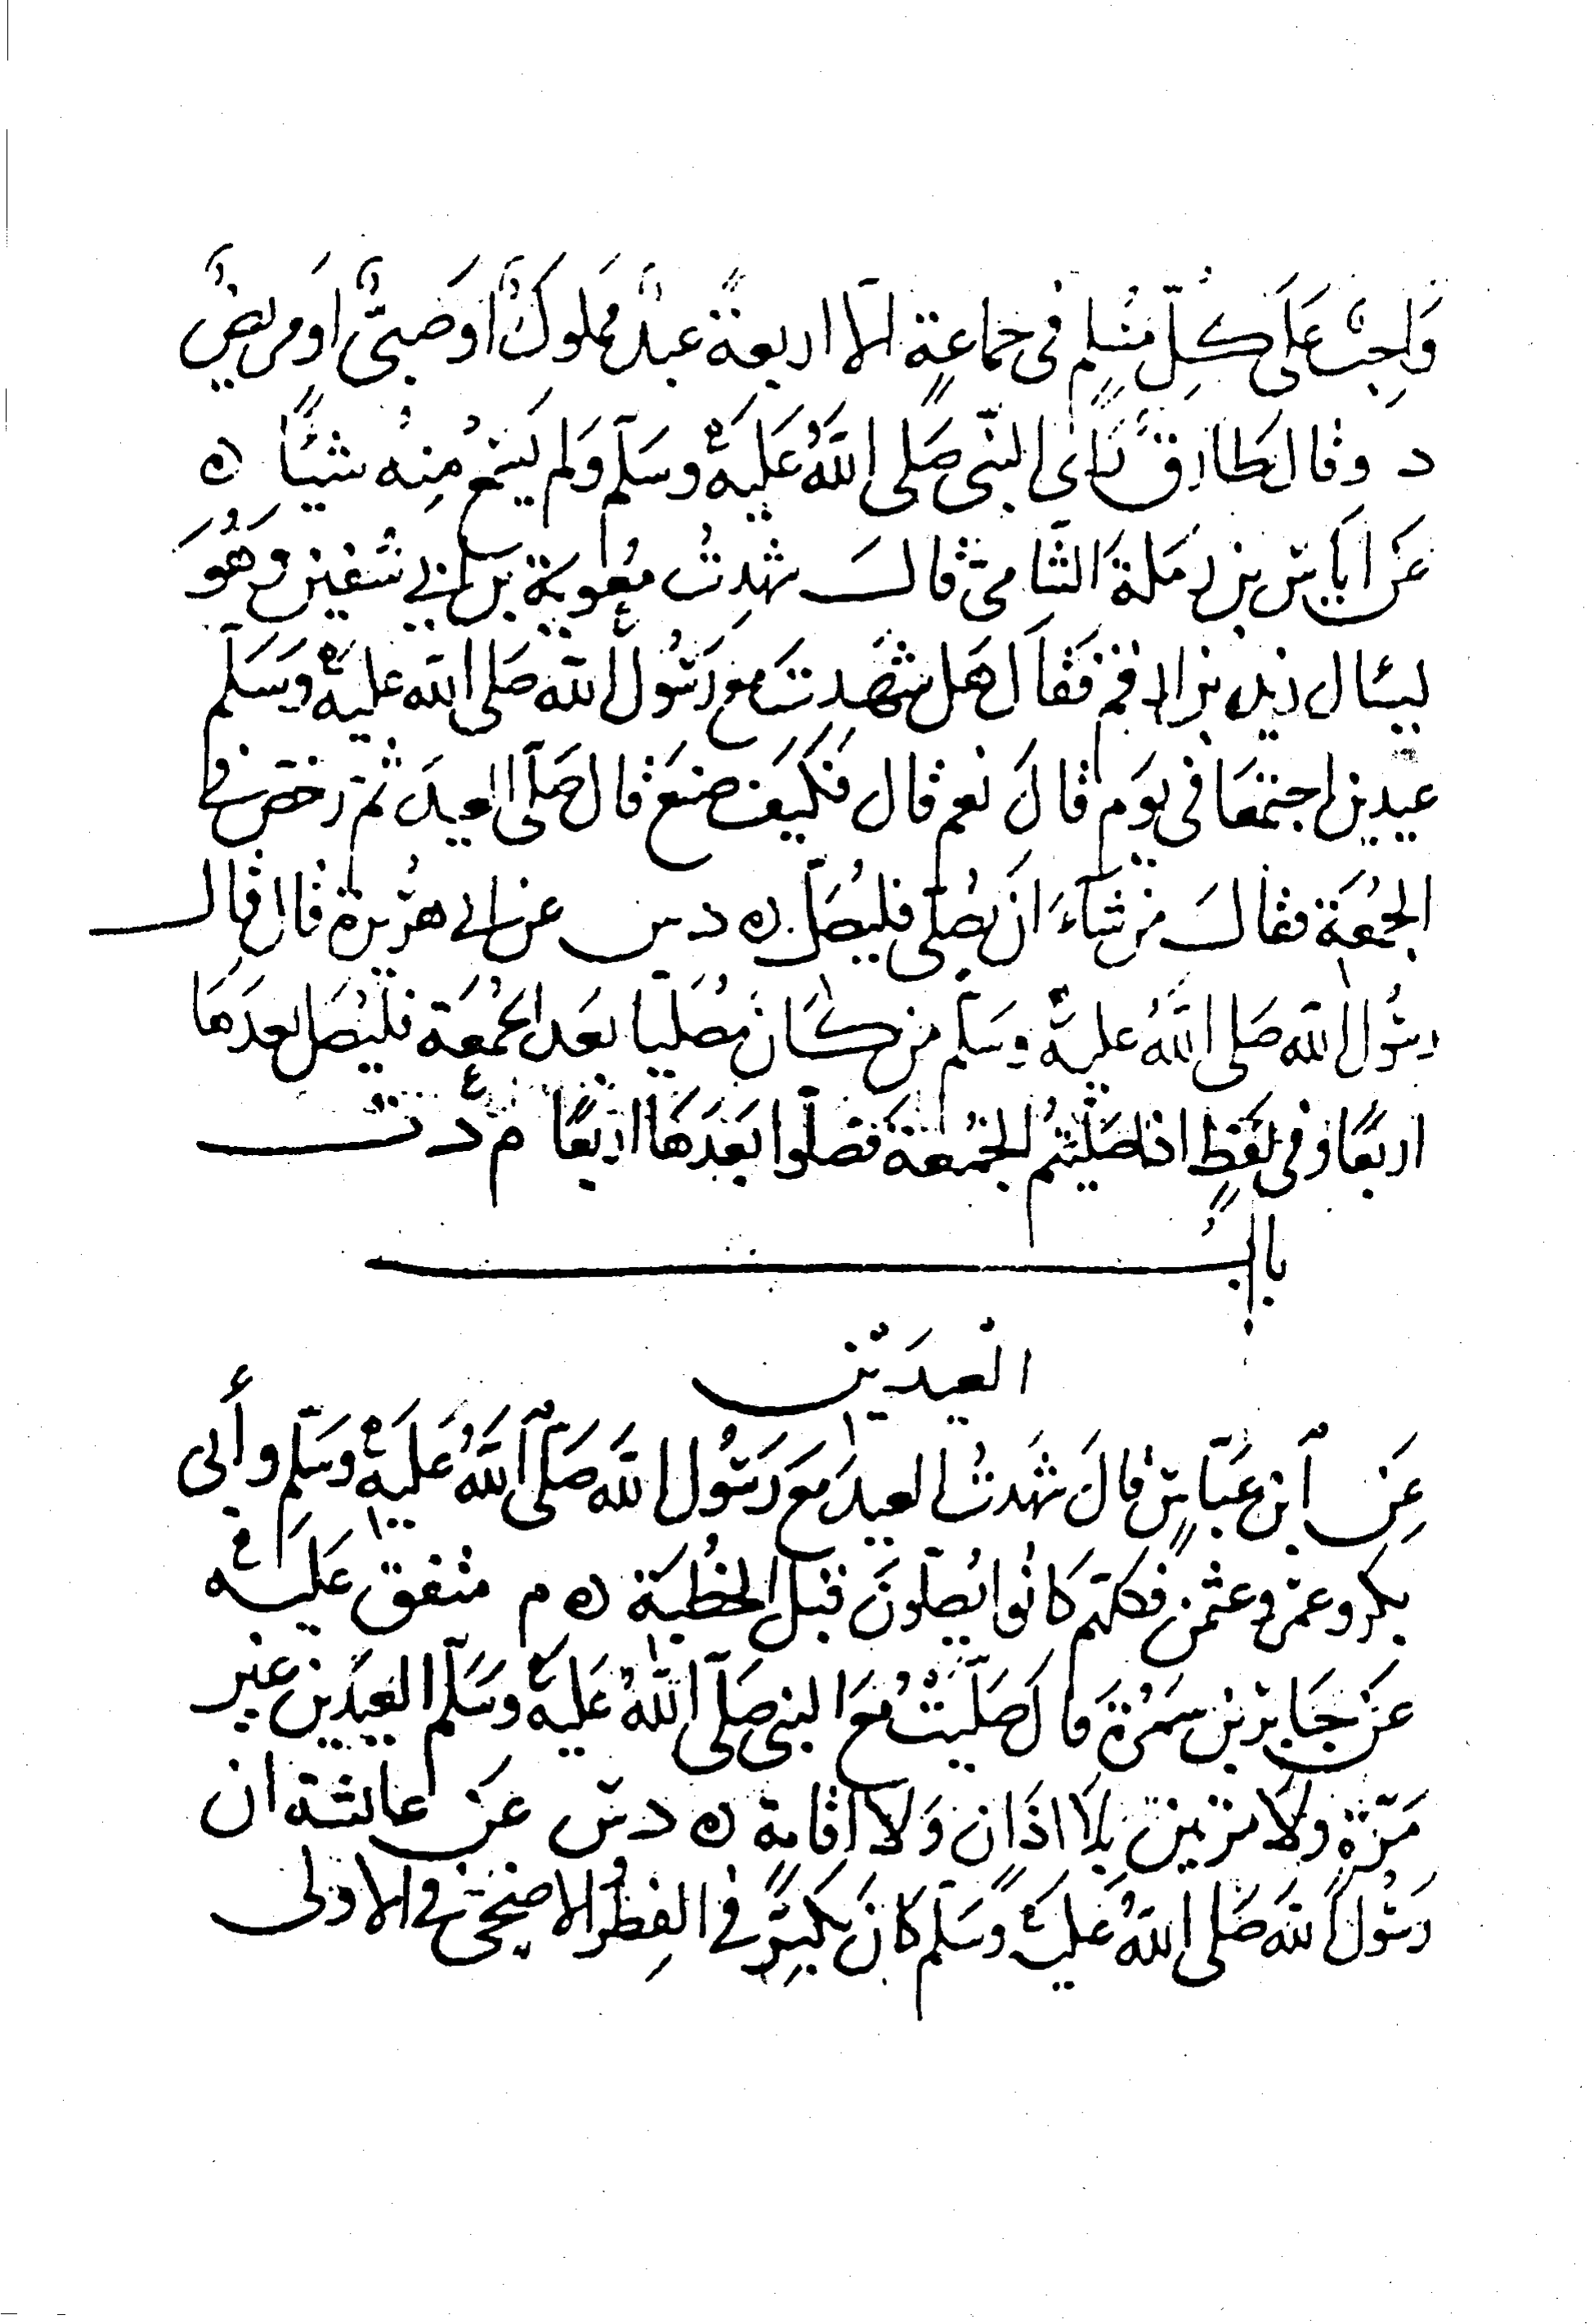 وَاجِبٌ عَلَى كُلِّ مُسْلِمٍ فى جماعةٍ اِلَّا اربعةً عبدٌ مملوكٌ اَوْ صَبىٌّ اَو مريضٌ
د وقال طارقٌ رَاَى النبى صَلى اللهُ عَلَيْهِ وسَلم وَلم يَسْمَعْ مِنهُ شيئًا ه
عَن اِيَاسِ بنِ رَملةَ الشَّامِىّ قال شهدتُ معوية بن ابي سُفين وَهُوَ
يسئال زيد بن ارقم فَقَال هَل شَهِدتَ مع رَسُول الله صَلى الله عليْهِ وَسَلم
عيدين اجتمعَا فى يَوم قالَ نعم قال فَكَيفَ صَنعَ قال صَلَّى العيدَ ثم رَخّصَ فى
الجمُعَة فقالَ مَن شَاءَ اَن يُصَلى فليُصَل ه د س عن ابى هُرَيرة قال قال
رسُول الله صَلى اللهُ عليه وسَلم من كَان مُصَليا بعَد الجمُعَة فليُصَل بعدَهَا
اربعًا وفى لَفظٍ اذا صَليتُم الجُمعَةَ فصَلوا بَعدَهَا اربَعًا م د ت
بابُ
العيدَيْن
عَن ابن عَبَّاسٍ قالَ شَهدتُ العيدَ مَع رَسُول الله صَلَّى اللهُ عَلَيْهِ وسَلم وأبى
بكر وعمر وعثمن فكلهم كانُوا يُصَلونَ قبل الخُطبَة ه م متفق عَلَيه
عَن جَابر بن سَمُرَةَ قالَ صَلَّيْتُ مَعَ النبى صَلَّى اللهُ عَليهِ وسَلم العِيدَين غير
مَرّةٍ وَلا مرتين بلا اذَانٍ وَلا اقامة ه د س عَن عائشة ان
رَسُول الله صَلى اللهُ عَليهِ وسَلم كانَ يكبّرُ فى الفِطر والاضحى فى الاولى